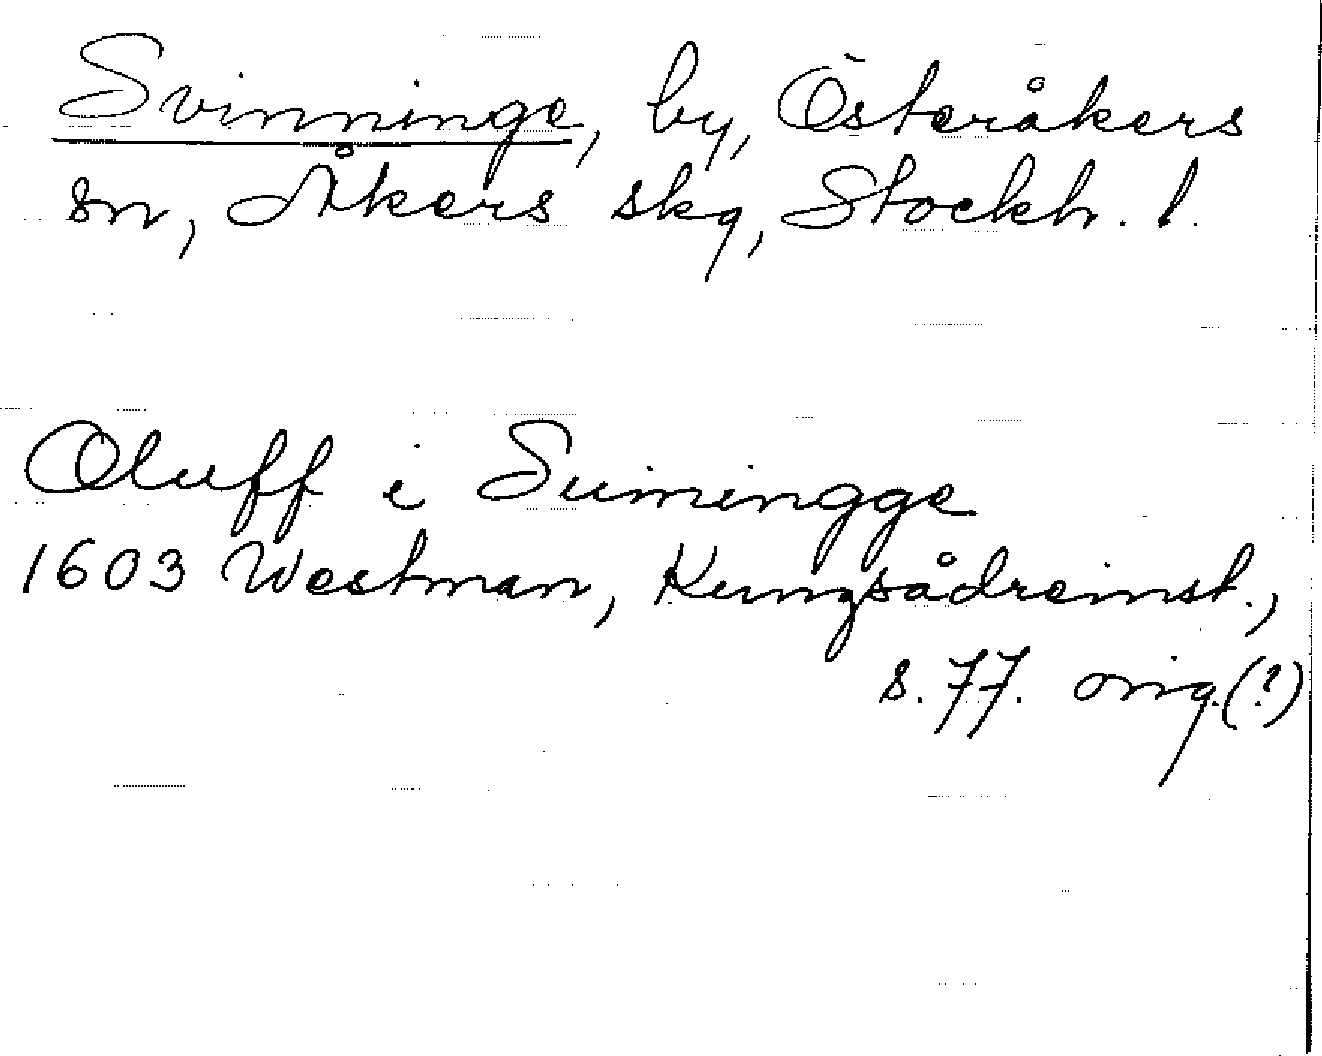 Svinninge, by, Österåkers
sn, Åkers skg, Stockh. l.
Oluff i Suiningge
1603 Westman, Kungsådreinst.,
s. 77. orig.(?)